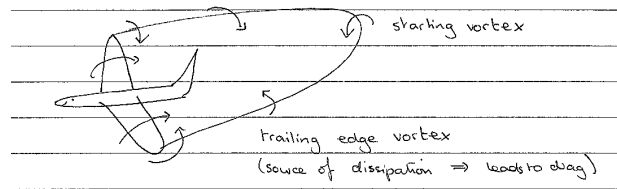 starting vortex
trailing edge vortex
(source of dissipation ⇒ leads to drag)